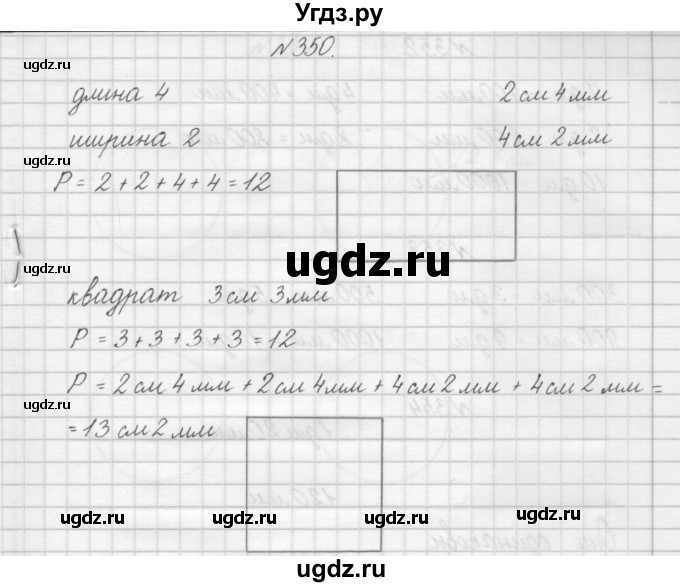 Угдз.ру
№350.
ugdz.ru
длина 4 2 см 4 мм
ширина 2 4 см 2 мм
ugdz.ru
P = 2 + 2 + 4 + 4 = 12
ugdz.ru
ugdz.ru
квадрат 3 см 3 мм
P = 3 + 3 + 3 + 3 = 12
ugdz.ru
P = 2 см 4 мм + 2 см 4 мм + 4 см 2 мм + 4 см 2 мм =
ugdz.ru
= 13 см 2 мм
ugdz.ru ugdz.ru ugdz.ru ugdz.ru
Угдз.ру